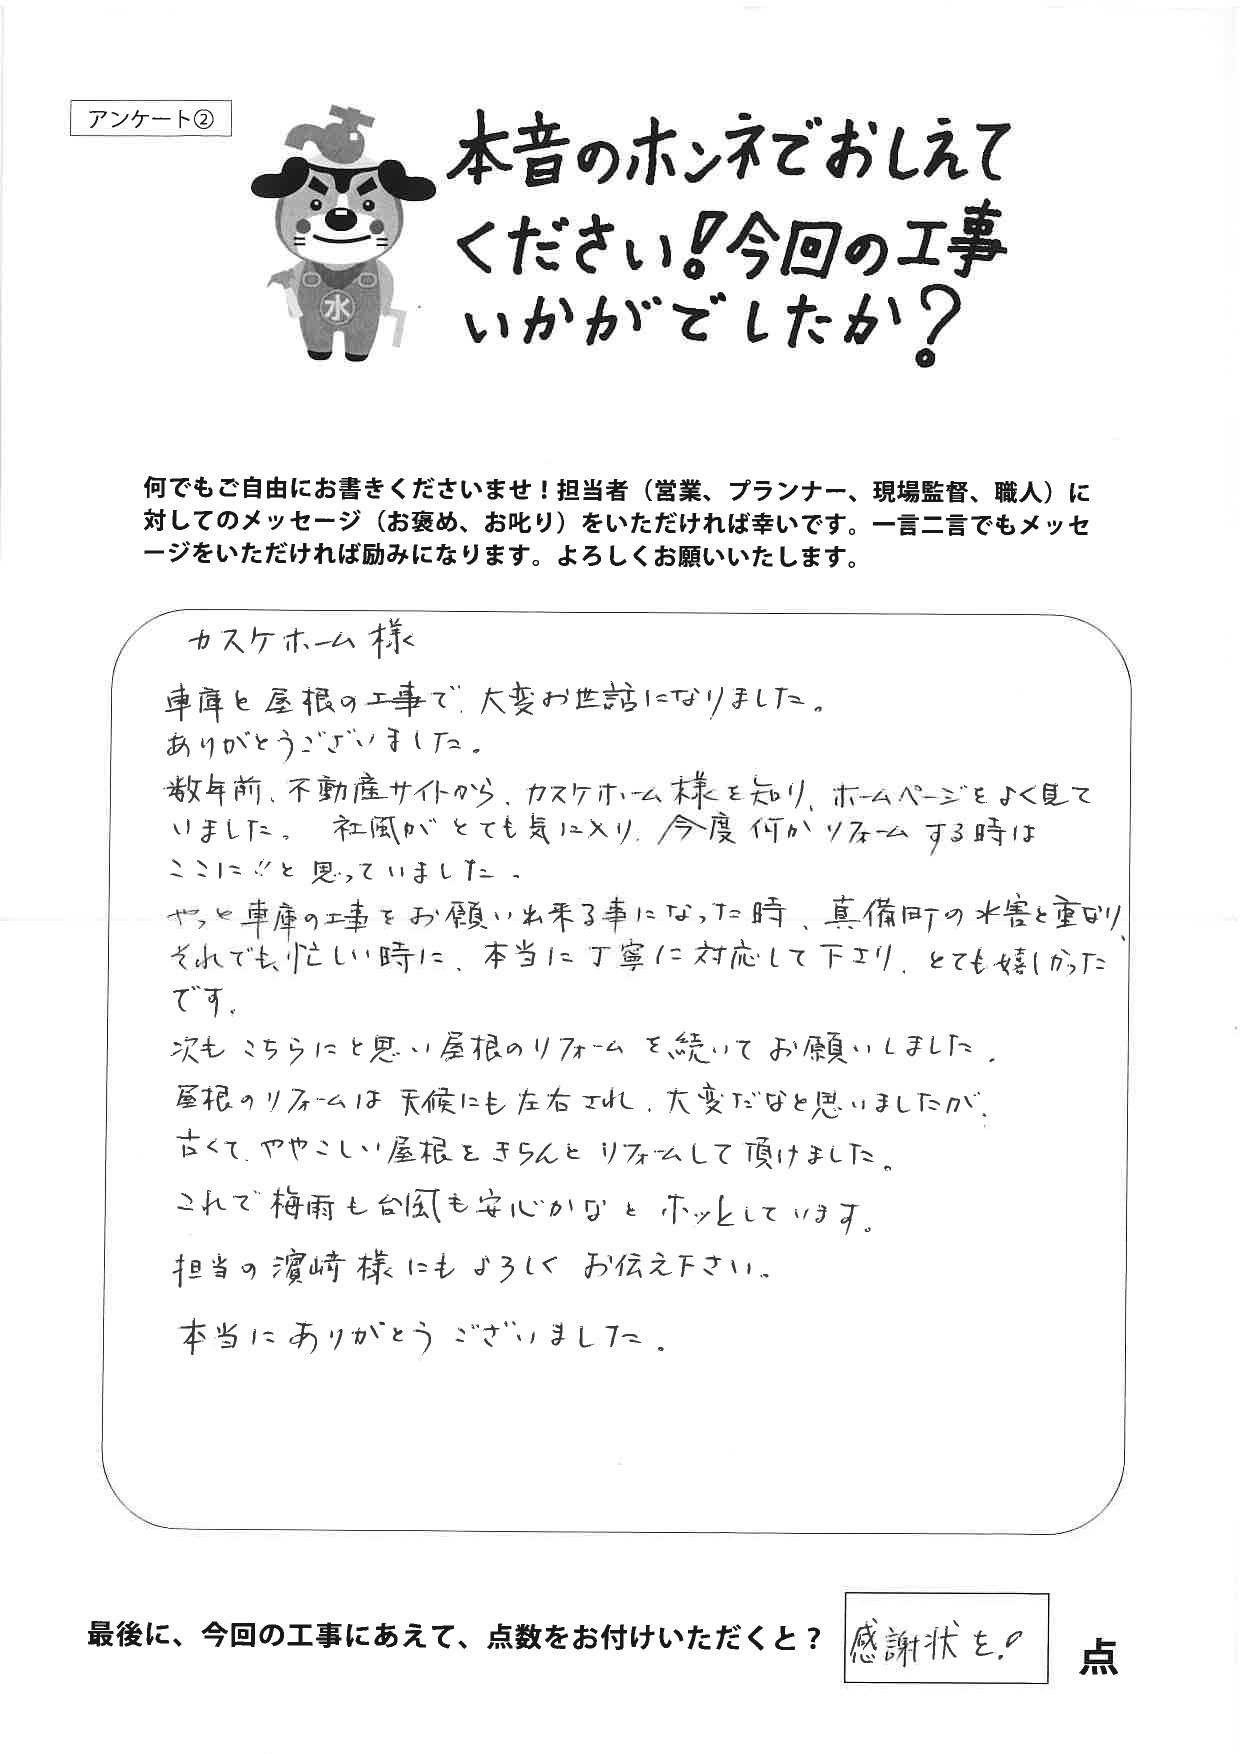 アンケート②
本音のホンネでおしえて
ください!今回の工事
いかがでしたか?
水
何でもご自由にお書きくださいませ!担当者(営業、プランナー、現場監督、職人)に
対してのメッセージ(お褒め、お叱り)をいただければ幸いです。一言二言でもメッセ
ージをいただければ励みになります。よろしくお願いいたします。
カスケホーム様
車庫と屋根の工事で、大変お世話になりました。
ありがとうございました。
数年前、不動産サイトから、カスケホーム様を知り、ホームページをよく見て
いました。社風がとても気に入り、今度何かリフォームする時は
ここに!!と思っていました。
やっと車庫の工事をお願い出来る事になった時、真備町の水害と重なり、
それでも、忙しい時に、本当に丁寧に対応して下さり、とても嬉しかった
です。
次もこちらにと思い屋根のリフォームを続いてお願いしました。
屋根のリフォームは天候にも左右され、大変だなと思いましたが、
古くて、ややこしい屋根をきちんとリフォームして頂けました。
これで梅雨も台風も安心かなとホッとしています。
担当の濱﨑様にもよろしくお伝え下さい。
本当にありがとうございました。
最後に、今回の工事にあえて、点数をお付けいただくと?
感謝状を!
点